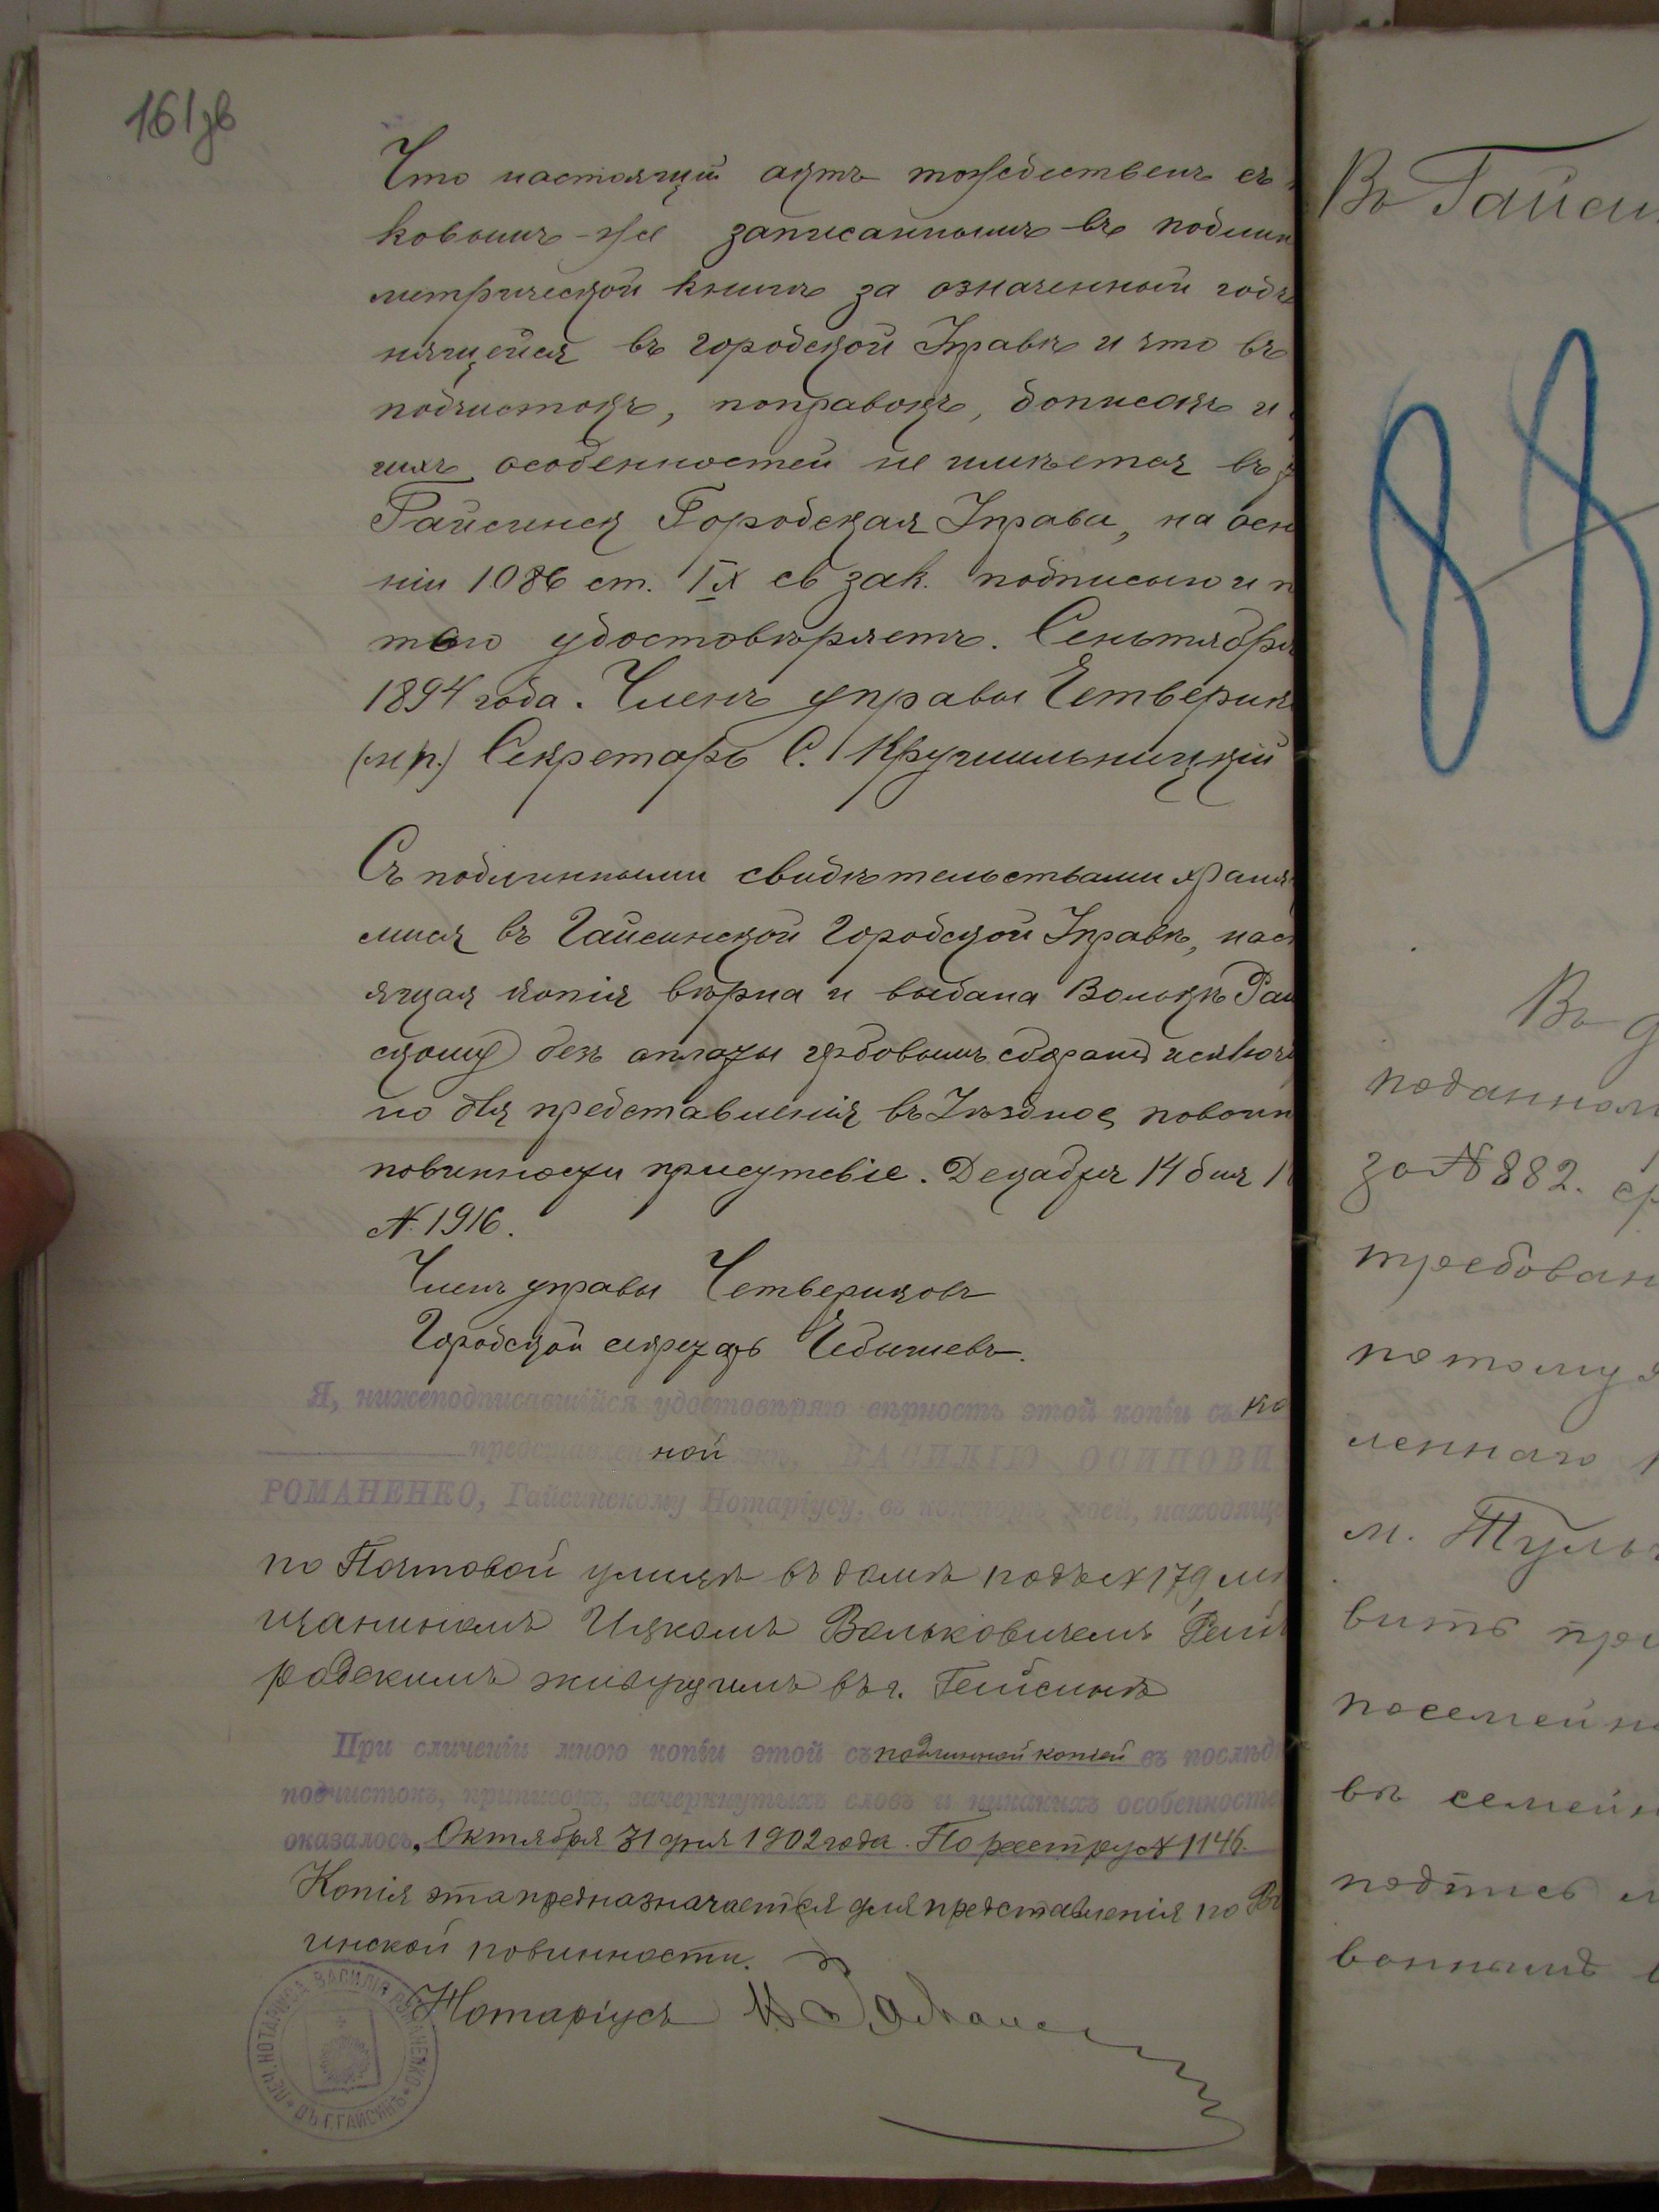 161зв
Что настоящій актъ тождественъ съ
ковымъ-же записаннымъ въ подлин
метрической книгѣ за означенный годъ
нящейся въ городской Управѣ и что въ
подчистокъ, поправокъ, дописокъ и
гихъ особенностей не имѣется въ
Гайсинск Городская Управа, на осн
ніи 1086 ст. IX св зак. подписью и п
тью удостовѣряетъ. Сеньтября
1894 года. Членъ управы Четверик
(м.п.) Секретарь С. Кручильницкій
Съ подлинными свидѣтельствами храня
мися въ Гайсинской Городской Управѣ, нас
ящая копія вѣрна и выдана Волькѣ Рай
скому безъ оплаты гербовымъ сборомъ исключ
но для представленія въ Уѣздное по воин
повинности присутствіе. Декабря 14 дня 1
№ 1916.
Членъ управы Четвериковъ
Городской секретарь Чебышевъ.
Я, нижеподписавшійся удостовѣряю вѣрность этой копіи съ ко
представлен ной мнѣ, ВАСИЛІЮ ОСИПОВИ
РОМАНЕНКО, Гайсинскому Нотаріусу, въ конторѣ моей, находяще
по Почтовой улицѣ въ домѣ подъ № 179, мѣ
щаниномъ Ицкомъ Вольковичемъ Рай
родскимъ живущимъ въ г. Гайсинѣ
При сличеніи мною копіи этой съ подлинной копіей въ послѣд
подчистокъ, приписокъ, зачеркнутыхъ словъ и никакихъ особенносте
оказалось. Октября 31 дня 1902 года. По реестру № 1146.
Копія эта предназначается для представленія по Во
инской повинности.
Нотаріусъ
ПЕЧ. НОТАРІУСА ВАСИЛІЯ РОМАНЕНКО ВЪ Г. ГАЙСИНѢ
Въ Гайси
88
Въ
поданном
за № 882.
требован
потому
леннаго
м. Туль
вить пре
посемейн
въ семейн
подпись
воннымъ